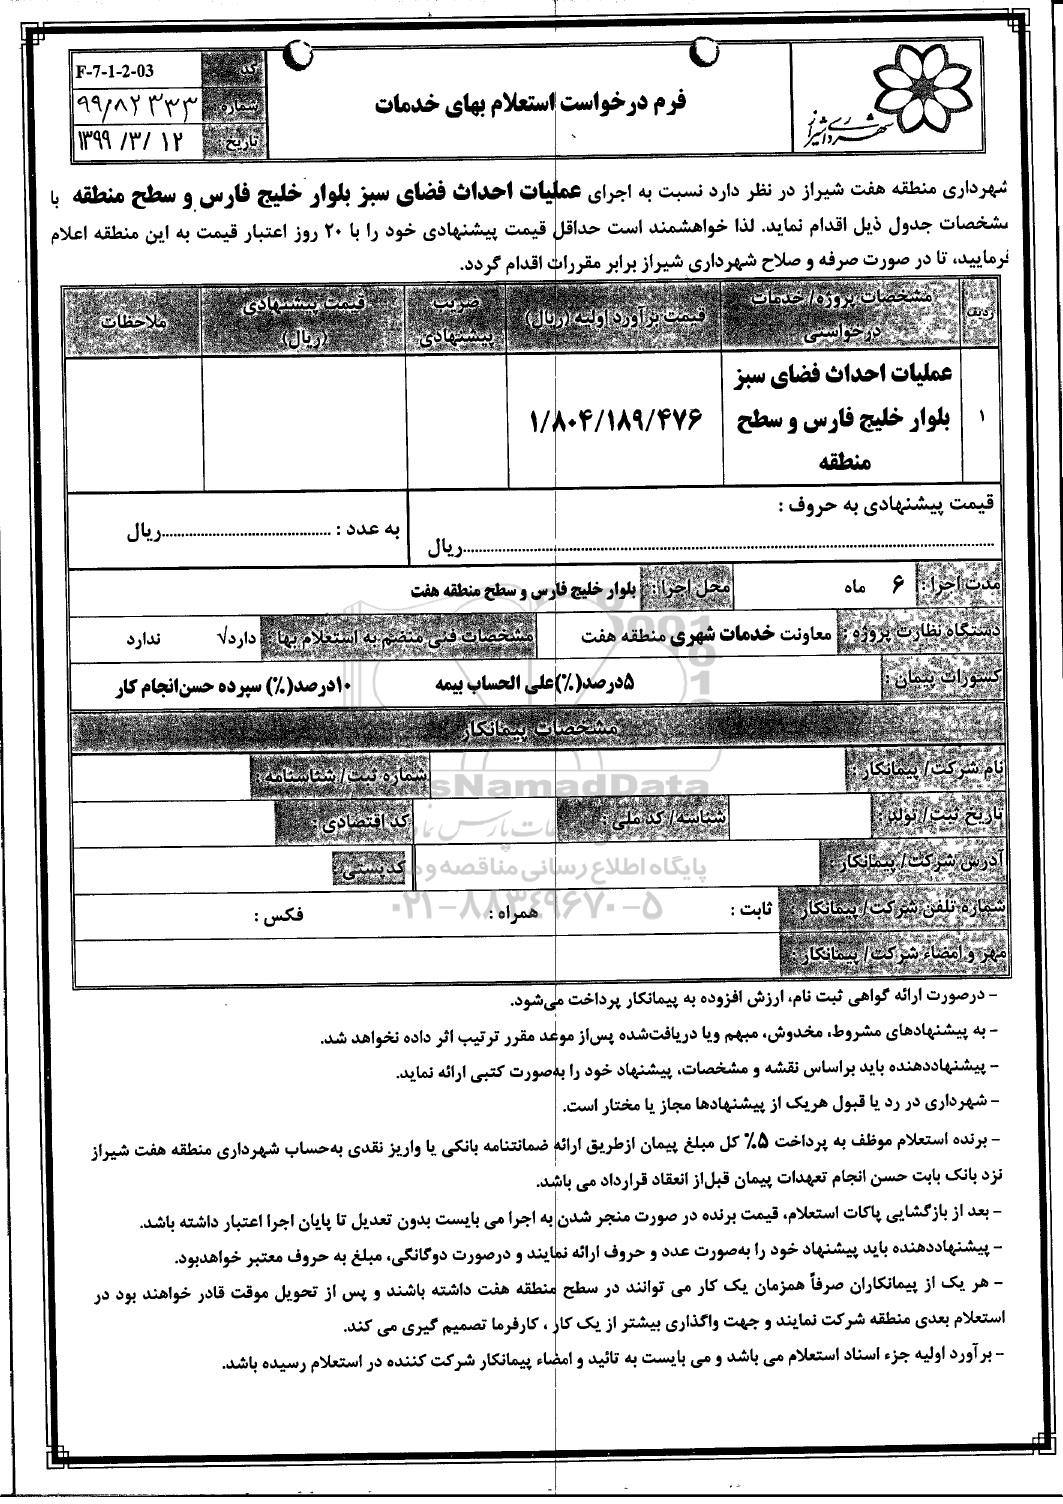 کد: F-7-1-2-03
شماره: ۹۹/۸۲۳۳۳
تاریخ: ۱۳۹۹/۳/۱۲
فرم درخواست استعلام بهای خدمات
شهرداری شیراز
شهرداری منطقه هفت شیراز در نظر دارد نسبت به اجرای عملیات احداث فضای سبز بلوار خلیج فارس و سطح منطقه با
مشخصات جدول ذیل اقدام نماید. لذا خواهشمند است حداقل قیمت پیشنهادی خود را با ۲۰ روز اعتبار قیمت به این منطقه اعلام
فرمایید، تا در صورت صرفه و صلاح شهرداری شیراز برابر مقررات اقدام گردد.
ردیف مشخصات پروژه/ خدمات درخواستی قیمت برآورد اولیه (ریال) ضریب پیشنهادی قیمت پیشنهادی (ریال) ملاحظات
۱ عملیات احداث فضای سبز
بلوار خلیج فارس و سطح ۱/۸۰۴/۱۸۹/۴۷۶
منطقه
قیمت پیشنهادی به حروف :
......ریال به عدد : ......ریال
مدت اجرا : ۶ ماه محل اجرا : بلوار خلیج فارس و سطح منطقه هفت
دستگاه نظارت پروژه : معاونت خدمات شهری منطقه هفت مشخصات فنی منضم به استعلام بها : دارد√ ندارد
کسورات پیمان : ۵درصد(%)علی الحساب بیمه ۱۰درصد(%) سپرده حسن‌انجام کار
مشخصات پیمانکار
نام شرکت/ پیمانکار : شماره ثبت/ شناسنامه :
تاریخ ثبت/ تولد : شناسه/ کد ملی : کد اقتصادی :
آدرس شرکت/ پیمانکار : کدپستی :
شماره تلفن شرکت/ پیمانکار ثابت : همراه : فکس :
مهر و امضاء شرکت/ پیمانکار :
sNamadData
پایگاه اطلاع رسانی مناقصه و
۰۲۱-۸۸۳۴۹۶۷۰-۵
- درصورت ارائه گواهی ثبت نام، ارزش افزوده به پیمانکار پرداخت می‌شود.
- به پیشنهادهای مشروط، مخدوش، مبهم ویا دریافت‌شده پس‌از موعد مقرر ترتیب اثر داده نخواهد شد.
- پیشنهاددهنده باید براساس نقشه و مشخصات، پیشنهاد خود را به‌صورت کتبی ارائه نماید.
- شهرداری در رد یا قبول هریک از پیشنهادها مجاز یا مختار است.
- برنده استعلام موظف به پرداخت ۵% کل مبلغ پیمان ازطریق ارائه ضمانتنامه بانکی یا واریز نقدی به‌حساب شهرداری منطقه هفت شیراز
نزد بانک بابت حسن انجام تعهدات پیمان قبل‌از انعقاد قرارداد می باشد.
- بعد از بازگشایی پاکات استعلام، قیمت برنده در صورت منجر شدن به اجرا می بایست بدون تعدیل تا پایان اجرا اعتبار داشته باشد.
- پیشنهاددهنده باید پیشنهاد خود را به‌صورت عدد و حروف ارائه نمایند و درصورت دوگانگی، مبلغ به حروف معتبر خواهدبود.
- هر یک از پیمانکاران صرفاً همزمان یک کار می توانند در سطح منطقه هفت داشته باشند و پس از تحویل موقت قادر خواهند بود در
استعلام بعدی منطقه شرکت نمایند و جهت واگذاری بیشتر از یک کار ، کارفرما تصمیم گیری می کند.
- برآورد اولیه جزء اسناد استعلام می باشد و می بایست به تائید و امضاء پیمانکار شرکت کننده در استعلام رسیده باشد.